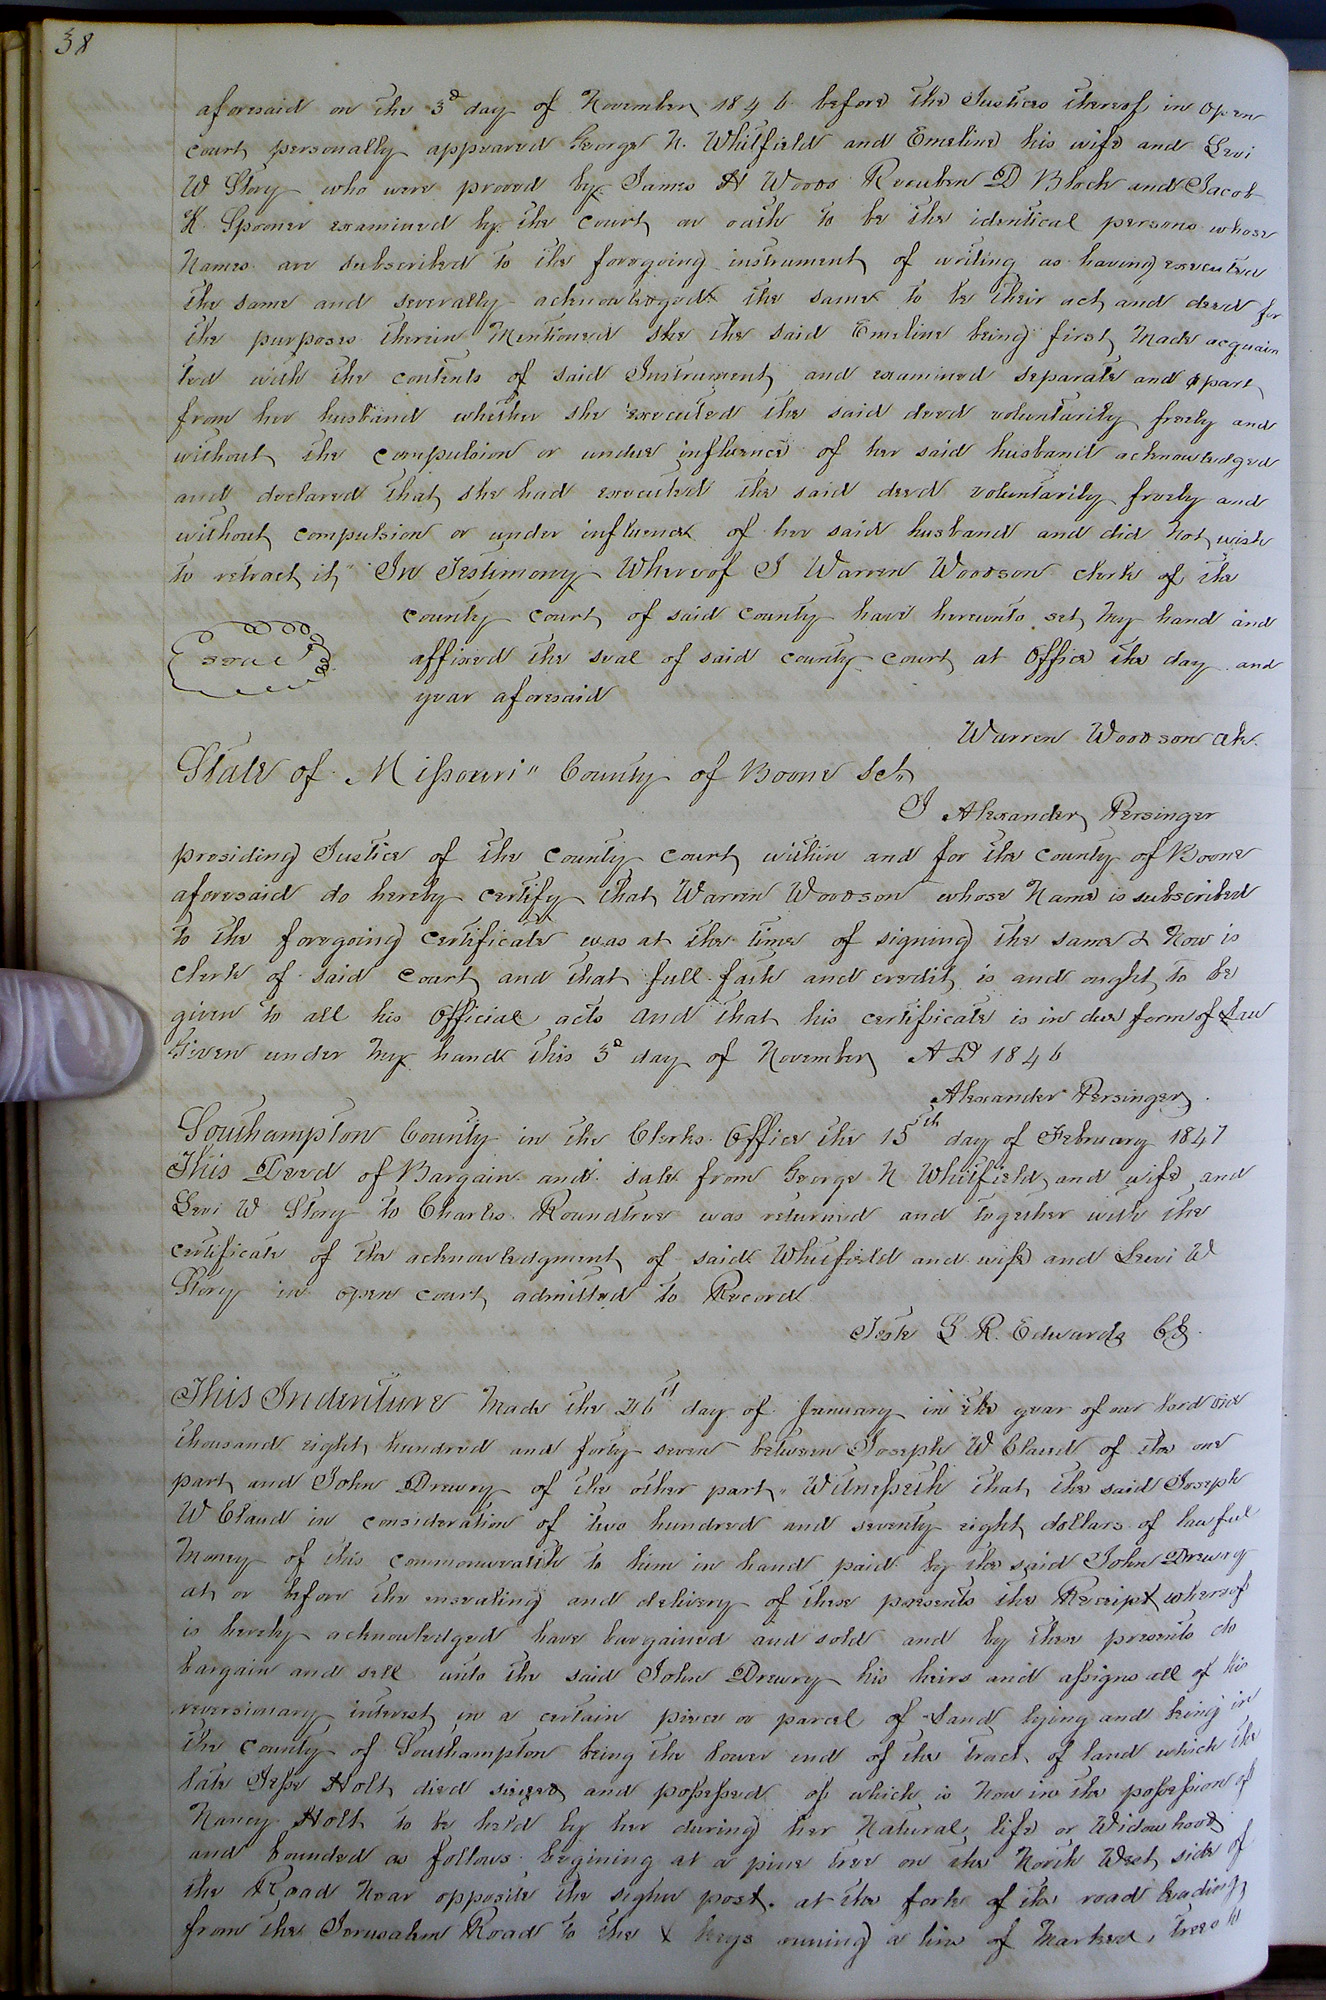 38
aforesaid on the 3d day of November 1846 before the Justices thereof in open
court personally appeared George N. Whitfield and Emeline his wife and Levi
W Story who were proved by James H Woods Reuben D Block and Jacob
K. Spooner examined by the court on oath to be the identical persons whose
Names are subscribed to the foregoing instrument of writing as having executed
the same and severally acknowledged the same to be their act and deed for
the purposes therein Mentioned she the said Emeline being first Made acquain
ted with the contents of said Instrument and examined separate and apart
from her husband whether she executed the said deed voluntarily freely and
without the compulsion or undue influence of her said husband acknowledged
and declared that she had executed the said deed voluntarily freely and
without compulsion or under influence of her said husband and did Not wish
to retract it" In Testimony Whereof I Warren Woodson clerk of the
county court of said county have hereunto set My hand and
seal
affixed the seal of said county court at Office the day and
year aforesaid
Warren Woodson Clk.
State of Missouri" County of Boone Sct"
I Alexander Persinger
presiding Justice of the County court within and for the County of Boone
aforesaid do hereby certify that Warren Woodson whose Name is subscribed
to the foregoing certificate was at the time of signing the same & Now is
Clerk of said Court and that full faith and credit is and ought to be
given to all his Official acts and that his certificate is in due form of Law
Given under My hand this 3d day of November A D 1846
Alexander Persinger.
Southampton County in the Clerks Office the 15th day of February 1847
This Deed of Bargain and sale from George N Whitfield and wife and
Levi W Story to Charles Roundtree was returned and together with the
certificate of the acknowledgment of said Whitfield and wife and Levi W
Story in open court admitted to Record
Teste L. R. Edwards CC.
This Indenture Made the 26th day of January in the year of our Lord one
thousand eight hundred and forty seven between Joseph W Claud of the one
part and John Drewry of the other part" Witnesseth that the said Joseph
W Claud in consideration of two hundred and seventy eight dollars of lawful
Money of this commonwealth to him in hand paid by the said John Drewry
at or before the ensealing and delivery of these presents the Receipt whereof
is hereby acknowledged have bargained and sold and by these presents do
bargain and sell unto the said John Drewry his heirs and assigns all of his
reversionary interest in a certain piece or parcel of Land lying and being in
the County of Southampton being the lower end of the tract of land which the
late Jesse Holt died siezed and possessed of which is Now in the possession of
Nancy Holt to be held by her during her Natural life or Widowhood
and bounded as follows begining at a pine tree on the North West side of
the Road Near opposite the sighn post. at the fork of the road leading
from the Jerusalem Road to the X Keys runing a line of Marked trees to